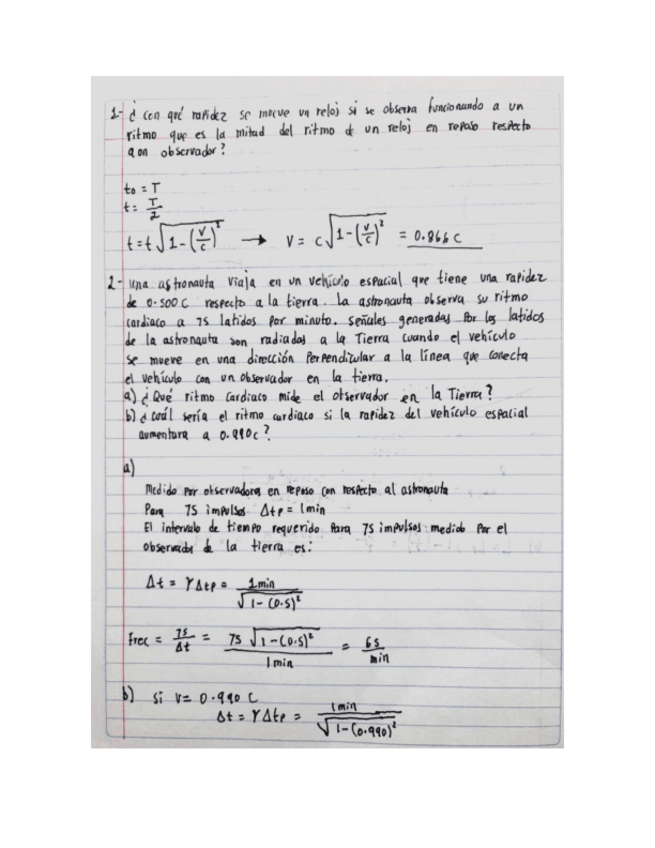 1- ¿ con qué rapidez se mueve un reloj si se observa funcionando a un
ritmo que es la mitad del ritmo de un reloj en reposo respecto
a un observador?
t₀ = T
t = T/2
t = t√(1 - (v/c)²) → V = c√(1 - (v/c)²) = 0.866 c
2- una astronauta viaja en un vehículo espacial que tiene una rapidez
de 0.500 C respecto a la tierra. La astronauta observa su ritmo
cardiaco a 75 latidos por minuto. señales generadas por los latidos
de la astronauta son radiados a la Tierra cuando el vehículo
se mueve en una dirección perpendicular a la línea que conecta
el vehículo con un observador en la tierra.
a) ¿ Qué ritmo cardiaco mide el observador en la Tierra?
b) ¿ cuál sería el ritmo cardiaco si la rapidez del vehículo espacial
aumentara a 0.990 c?
a)
Medido por observadores en reposo con respecto al astronauta
Para 75 impulsos Δtp = 1 min
El intervalo de tiempo requerido para 75 impulsos medido por el
observador de la tierra es:
Δt = γ Δtp = 1 min / √(1 - (0.5)²)
Frec = 75/Δt = 75 √(1 - (0.5)²) / 1 min = 65/min
b) si v = 0.990 C
Δt = γ Δtp = 1 min / √(1 - (0.990)²)